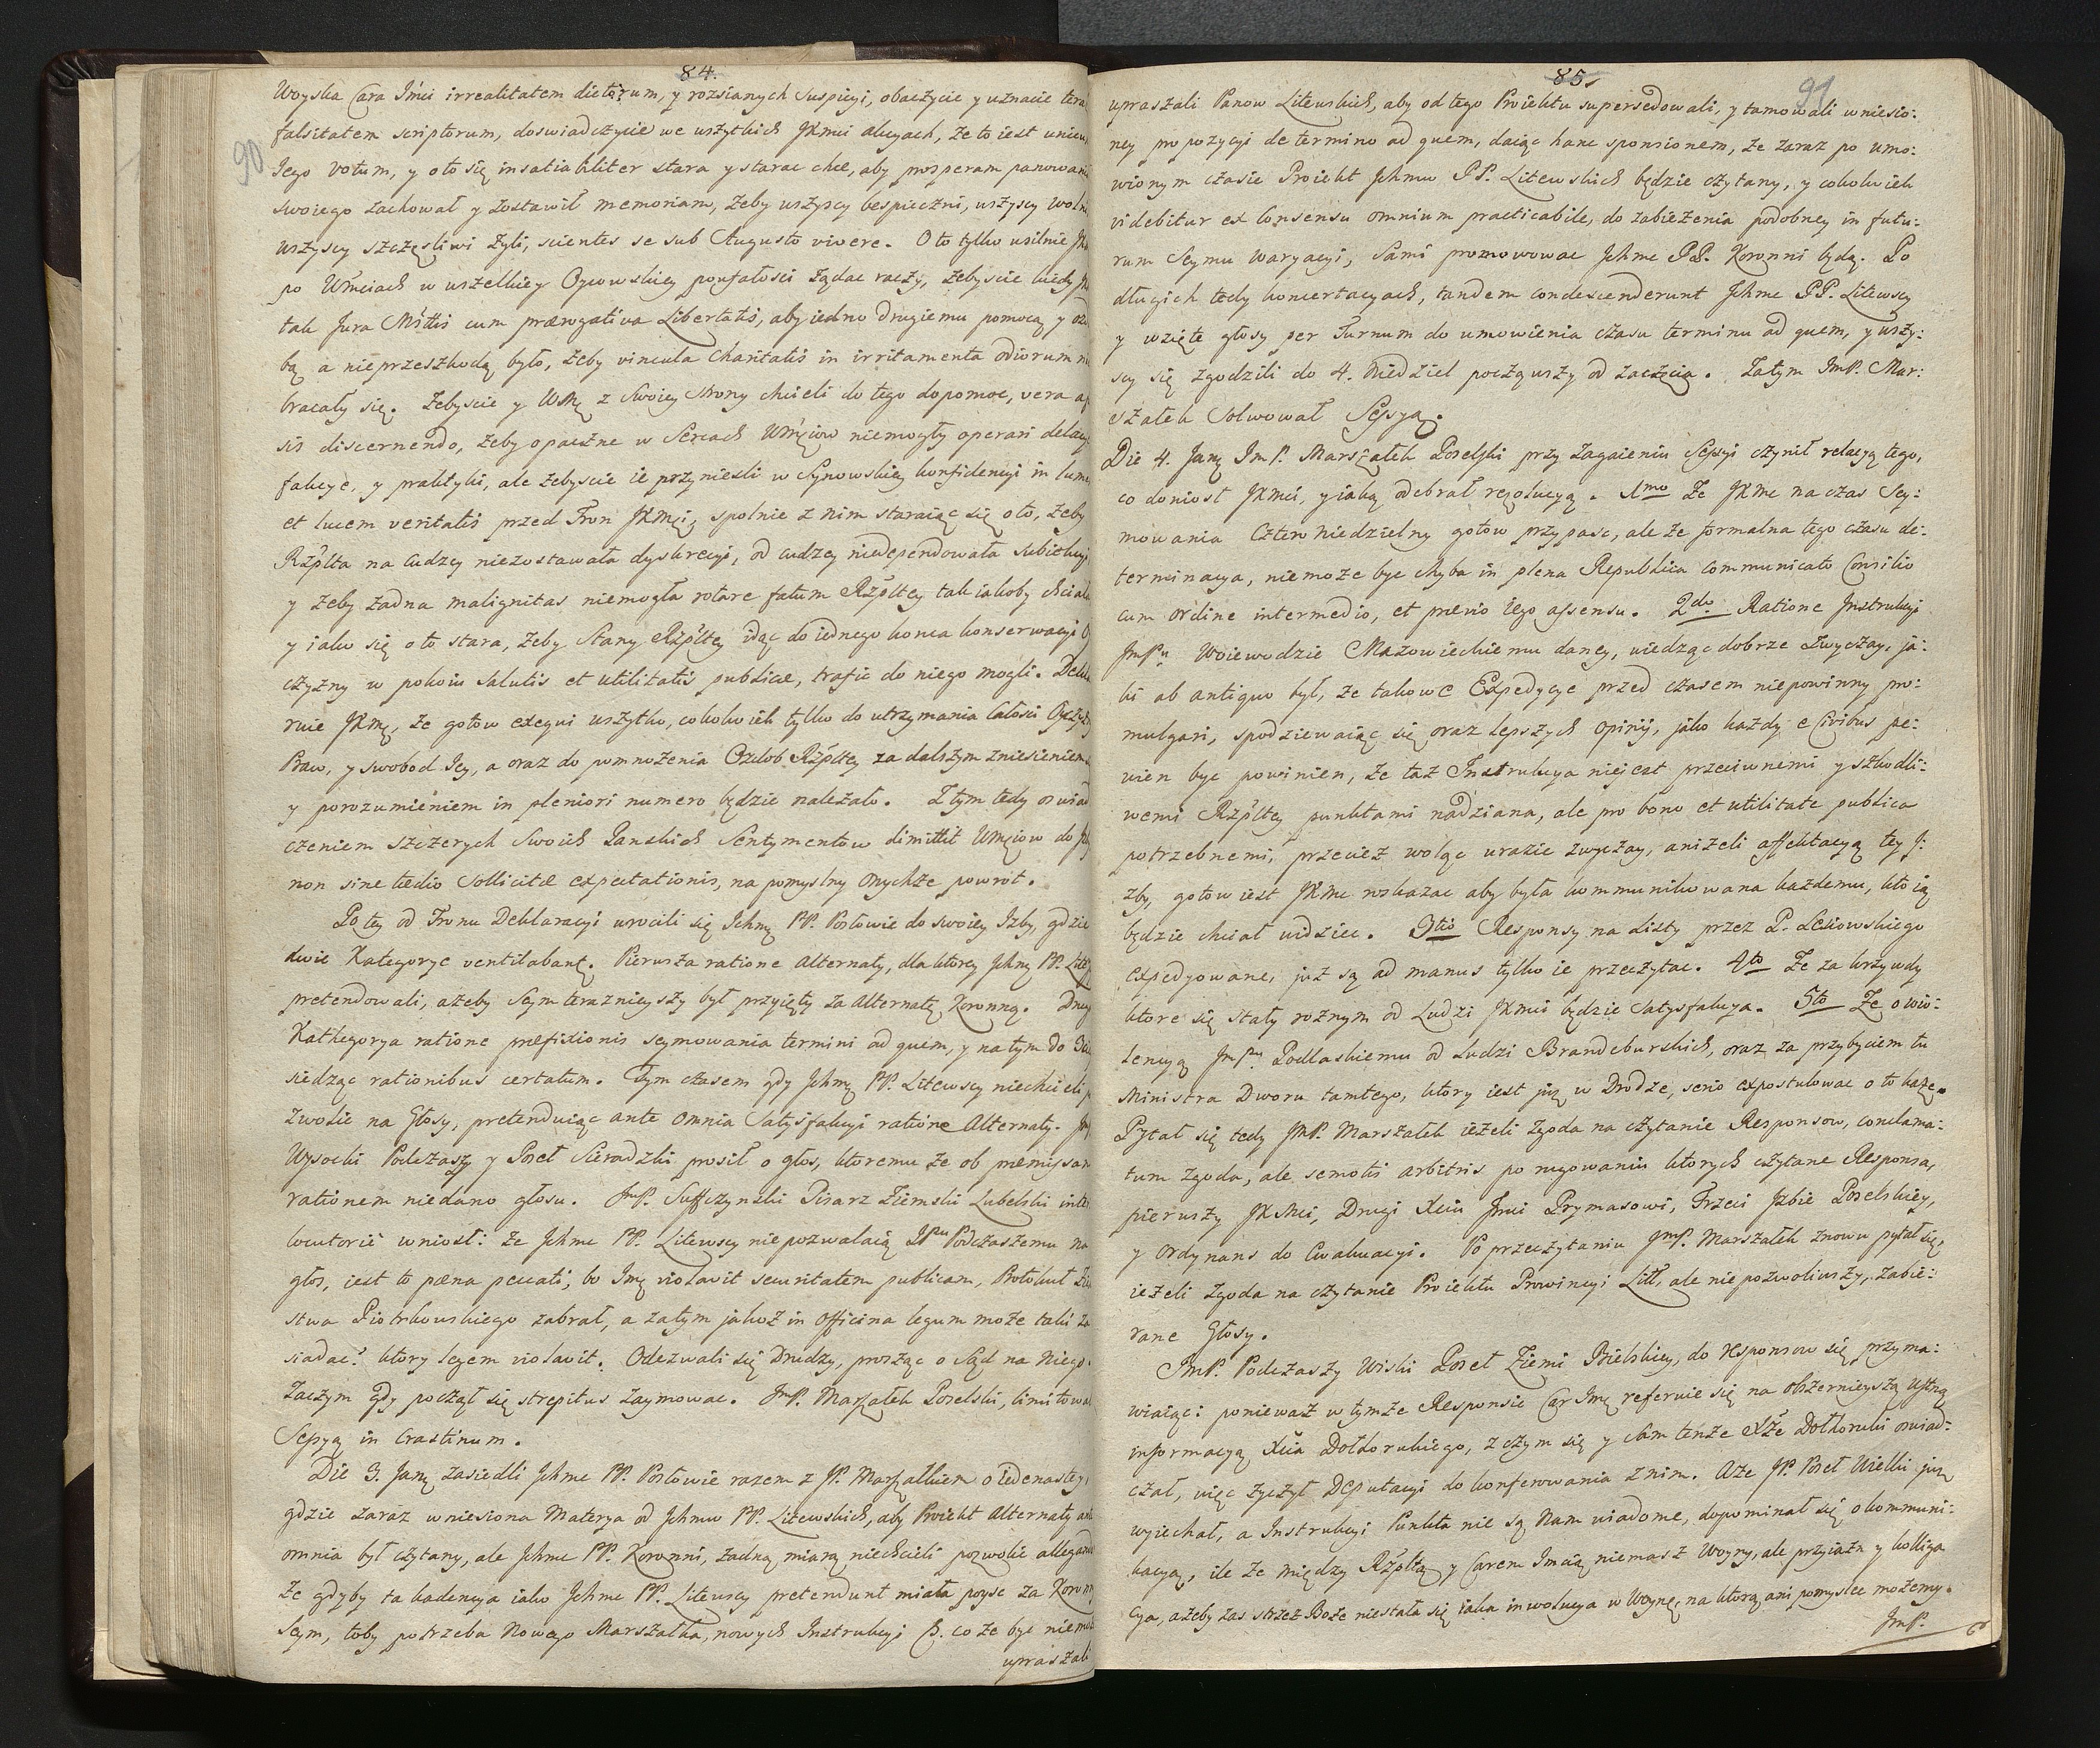 84.
90
Woyska Cara Jmći irrealitatem dictorum, y rozsianych suspicyi, obaczycie y uznacie tera
falsitatem scriptorum, doswiadczycie we wszytkich JKmci akcyach, że to iest unicu
Jego votum, y oto się insatiabiliter stara y starac chce, aby prosperam panowania
swoiego zachował y zostawił memoriam, żeby wszyscy bespieczni, wszyscy wolni
wszyscy szczęsliwi żyli, scientes se sub Augusto vivere. O to tylko usilnie JK
po Wmciach w wszelkiey Oycowskiey poufałosci żądac raczy, żebyscie kiedy
tak Jura Mttis cum prærogativa Libertatis, aby iedno drugiemu pomocą y ozdo
bą a nieprzeszkodą było, żeby vincula charitatis in irritamenta odiorum n
bracały się. żebyscie y Wmę z swoiey strony chcieli do tego dopomoc, vera a
sis discernendo, żeby opaczne w Sercach Wmęiow niemogły operari delacy
fakcye, y praktyki, ale żebyscie ie przyniesli w Synowskiey konfidencyi in lume
et lucem veritatis przed Tron JKmęi, spolnie z nim staraiąc się oto, żeby
Rzplta na cudzey niezostawała dyskrecyi, od cudzey niedependowała subiekcyi
y żeby żadna malignitas niemogła rotare fatum Rzpltey tak iakoby chciała
y iako się oto stara, żeby Stany Rzpltey idąc do iednego konca konserwacyi O
czyzny w pokoiu salutis et utilitatis publicæ, trafic do niego mogli. Dekla
ruie JKmę, że gotow exequi wszytko, cokolwiek tylko do utrzymania całosci Oyczyz
Praw, y swobod Jey, a oraz do pomnożenia Ozdob Rzpltey za dalszym zniesieniem
y porozumieniem in pleniori numero będzie należało. Z tym tedy oswiad
czeniem szczerych Swoich Panskich Sentymentow dimittit Wmęiow do
non sine tædio sollicitæ expectationis, na pomyslny Onychże powrot.
Po tey od Tronu Deklaracyi wrocili się Jchmę PP. Posłowie do swoiey Izby, gdzie
dwie Kategorye ventilabantę. Pierwsza ratione alternaty, dla ktorey Jchmę PP. Lite
pretendowali, ażeby Seym terazniejszy był przyięty za alternatę Koronną. Drug
Kathegorya ratione præfixionis seymowania termini ad quem, y na tym do
siedząc rationibus certatum. Tym czasem gdy Jchmę PP. Litewscy niechcieli
zwolic na Głosy, pretenduiąc ante omnia Satysfakcyi ratione Alternaty. Jm
Wysocki Podczaszy y Poseł Sieradzki prosił o głos, ktoremu że ob præmissam
rationem niedano głosu. JmP. Suffczynski Pisarz Ziemski Lubelski inter
locutorie wniosł: że Jchmc PP. Litewscy niepozwalaią JPnu Podczaszemu na
głos, iest to pæna peccati, bo Jmę violavit securitatem publicam, Protokuł
stwa Piotrkowskiego zabrał, a zatym jakoż in officina legum może taki za
siadac? ktory legem violavit. Odezwali się Drudzy, prosząc o Sąd na niego.
Zaczym gdy począł się strepitus zaymowac. JmP. Marszałek Poselski, limitował
Sessyą in Crastinum.
Die 3. Janę zasiedli Jchmc PP. Posłowie razem z JP. Marszałkiem o iedenastey
gdzie zaraz wniesiona Materya od Jchmw PP. Litewskich, aby Proiekt Alternaty ante
omnia był czytany, ale Jchmc PP. Koronni, żadną miarą niechcieli pozwolic allegando
że gdyby ta kadencya iako Jchmc PP. Litewscy pretendunt miała poysc za Koronny
Seym, toby potrzeba Nowego Marszałka, nowych Instrukcyi &. co że byc niemo
upraszali
85.
91
upraszali Panow Litewskich, aby od tego Proiektu supersedowali, y tamowali wniesio:
ney propozycyi de termino ad quem, daiąc hanc sponsionem, że zaraz po umo:
wionym czasie Proiekt Jchmw PP. Litewskich będzie czytany, y cokolwiek
videbitur ex Consensu omnium practicabile, do zabieżenia podobney in futu:
rum Seymu waryacyi, sami promowowac Jchmc PP. Koronni będą. Po
długich tedy koncertacyach, tandem condescenderunt Jchmc PP. Litewscy
y wzięte głosy per Turnum do umowienia czasu terminu ad quem, y wszy:
scy się zgodzili do 4. Niedziel począwszy od zaczęcia. Zatym JmP. Mar:
szałek solwował Sessyą.
Die 4. Janę JmP. Marszałek Poselski przy zagaieniu Sessyi czynił relacyą tego,
co doniosł JKmci, y iaką odebrał rezolucyą. 1mo że JKmc na czas Sey:
mowania Czteroniedzielny gotow przypasc, ale że formalna tego czasu de:
terminacya, niemoże byc chyba in plena Republica communicato Consilio
cum ordine intermedio, et prævio iego assensu. 2do Ratione Instrukcyi
JmPu Woiewodzie Mazowieckiemu daney, wiedząc dobrze zwyczay, ja:
ki ab antiquo był, że takowe Expedycye przed czasem niepowinny pro:
mulgari, spodziewaiąc się oraz lepszych opinij, jako każdy e Civibus pe:
wien byc powinien, że taż Instrukcya niejest przeciwnemi y szkodli:
wemi Rzpltey punktami nadziana, ale pro bono et utilitate publica
potrzebnemi, przecież woląc urazic zwyczay, aniżeli affektacyą tey J:
zby, gotow iest JKmc rozkazac aby była kommunikowana każdemu, kto ią
będzie chciał widziec. 3tio Responsy na Listy przez P. Leskowskiego
expedyowane, już są ad manus tylko ie przeczytac. 4to Że za krzywdy
ktore się stały roznym od Ludzi JKmci będzie satysfakcya. 5to Że o wio:
lencyą JmPu Podlaskiemu od ludzi Brandeburskich, oraz za przybyciem tu
Ministra Dworu tamtego, ktory iest już w Drodze, serio expostulowac o to każe.
Pytał się tedy JmP. Marszałek ieżeli zgoda na czytanie Responsow, conclama:
tum zgoda, ale semotis arbitris po rugowaniu ktorych czytane Responsa,
pierwszy JKMci, Drugi Xciu Jmci Prymasowi, Trzeci Jzbie Poselskiey,
y Ordynans do Ewakuacyi. Po przeczytaniu JmP. Marszałek znowu pytał się,
ieżeli zgoda na czytanie Proiektu Prowincyi Litt, ale niepozwoliwszy, zabie:
rane Głosy.
JmP. Podczaszy Wiski Poseł Ziemi Bielskiey, do responsow się przyma:
wiaiąc: ponieważ w tymże Responsie Car Jmę referuie się na obszernieyszą ustną
informacyą Xcia Dołhorukiego, z czym się y sam tenże Xże Dołhoruki oswiad:
czał, więc życzył Deputacyi do konferowania z nim. Aże JP. Poseł Wielki już
wyiechał, a Instrukcyi Punkta nie są Nam wiadome, dopominał się o kommuni:
kacyą, ile że między Rzpltą y Carem Jmcią niemasz Woyny, ale przyiazn y kolliga
cya, ażeby zas strzeż Boże niestała się iaka inwolucya w Woynę, na ktorą ani pomyslec możemy.
JmP.